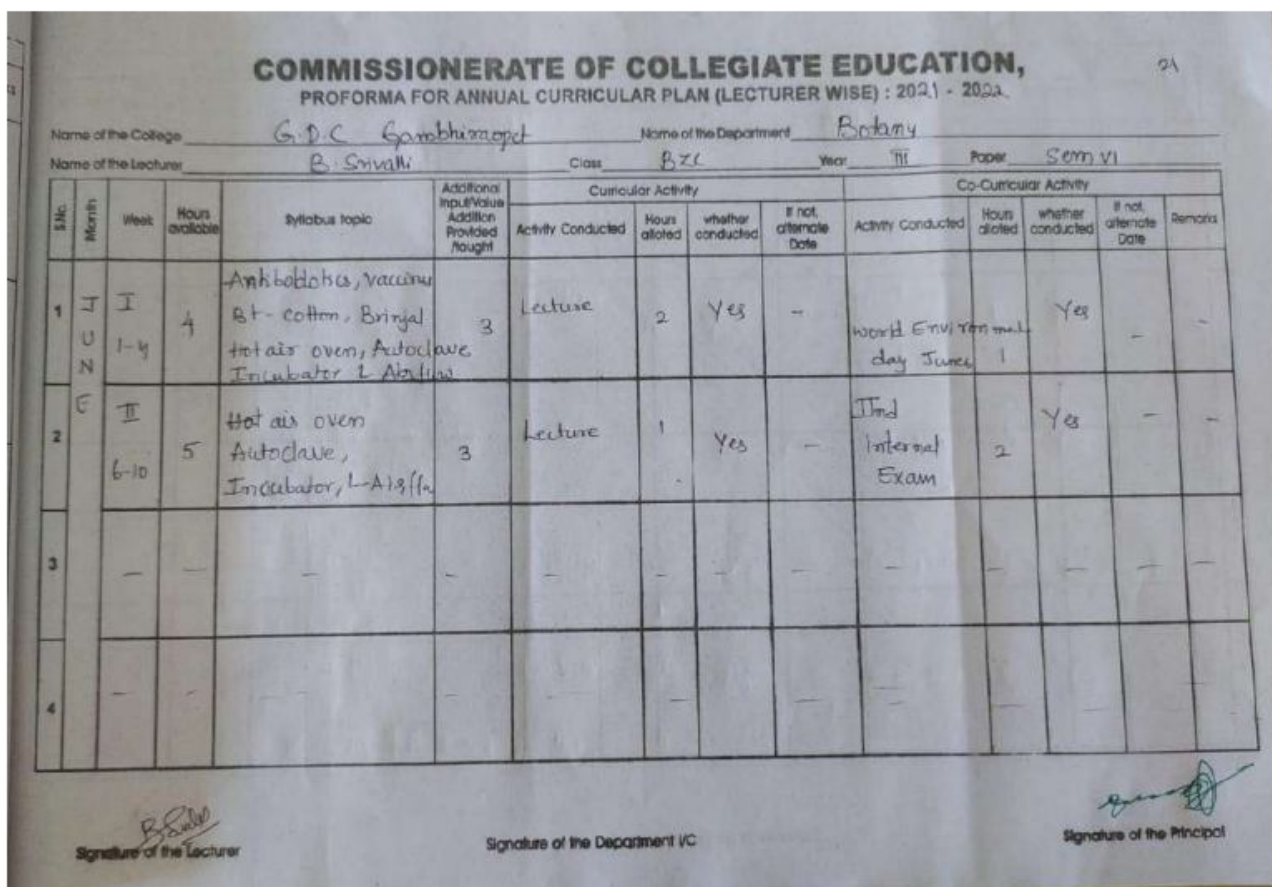 21
COMMISSIONERATE OF COLLEGIATE EDUCATION,
PROFORMA FOR ANNUAL CURRICULAR PLAN (LECTURER WISE) : 2021 - 2022
Name of the College G.D.C Gambhiraopet Name of the Department Botany
Name of the Lecturer B. Srivalli Class BZC Year III Paper Sem VI
S.No. Month Week Hours available Syllabus topic Additional Input/Value Addition Provided /taught Curricular Activity Co-Curricular Activity
Activity Conducted Hours alloted whether conducted If not, alternate Date Activity Conducted Hours alloted whether conducted If not, alternate Date Remarks
JUNE
1 I 1-4 4 vaccines
Bt- cotton, Brinjal
Hot air oven, Autoclave
Incubator 3 Lecture 2 Yes - World Environmental
day June 1 Yes - -
2 II 6-10 5 Hot air oven
Autoclave,
Incubator, 3 Lecture 1 Yes - IInd
Internal
Exam 2 Yes - -
3 - - - - - - - - - - - - -
4 - - - - - - - - - - - - -
Signature of the Lecturer Signature of the Department I/C Signature of the Principal